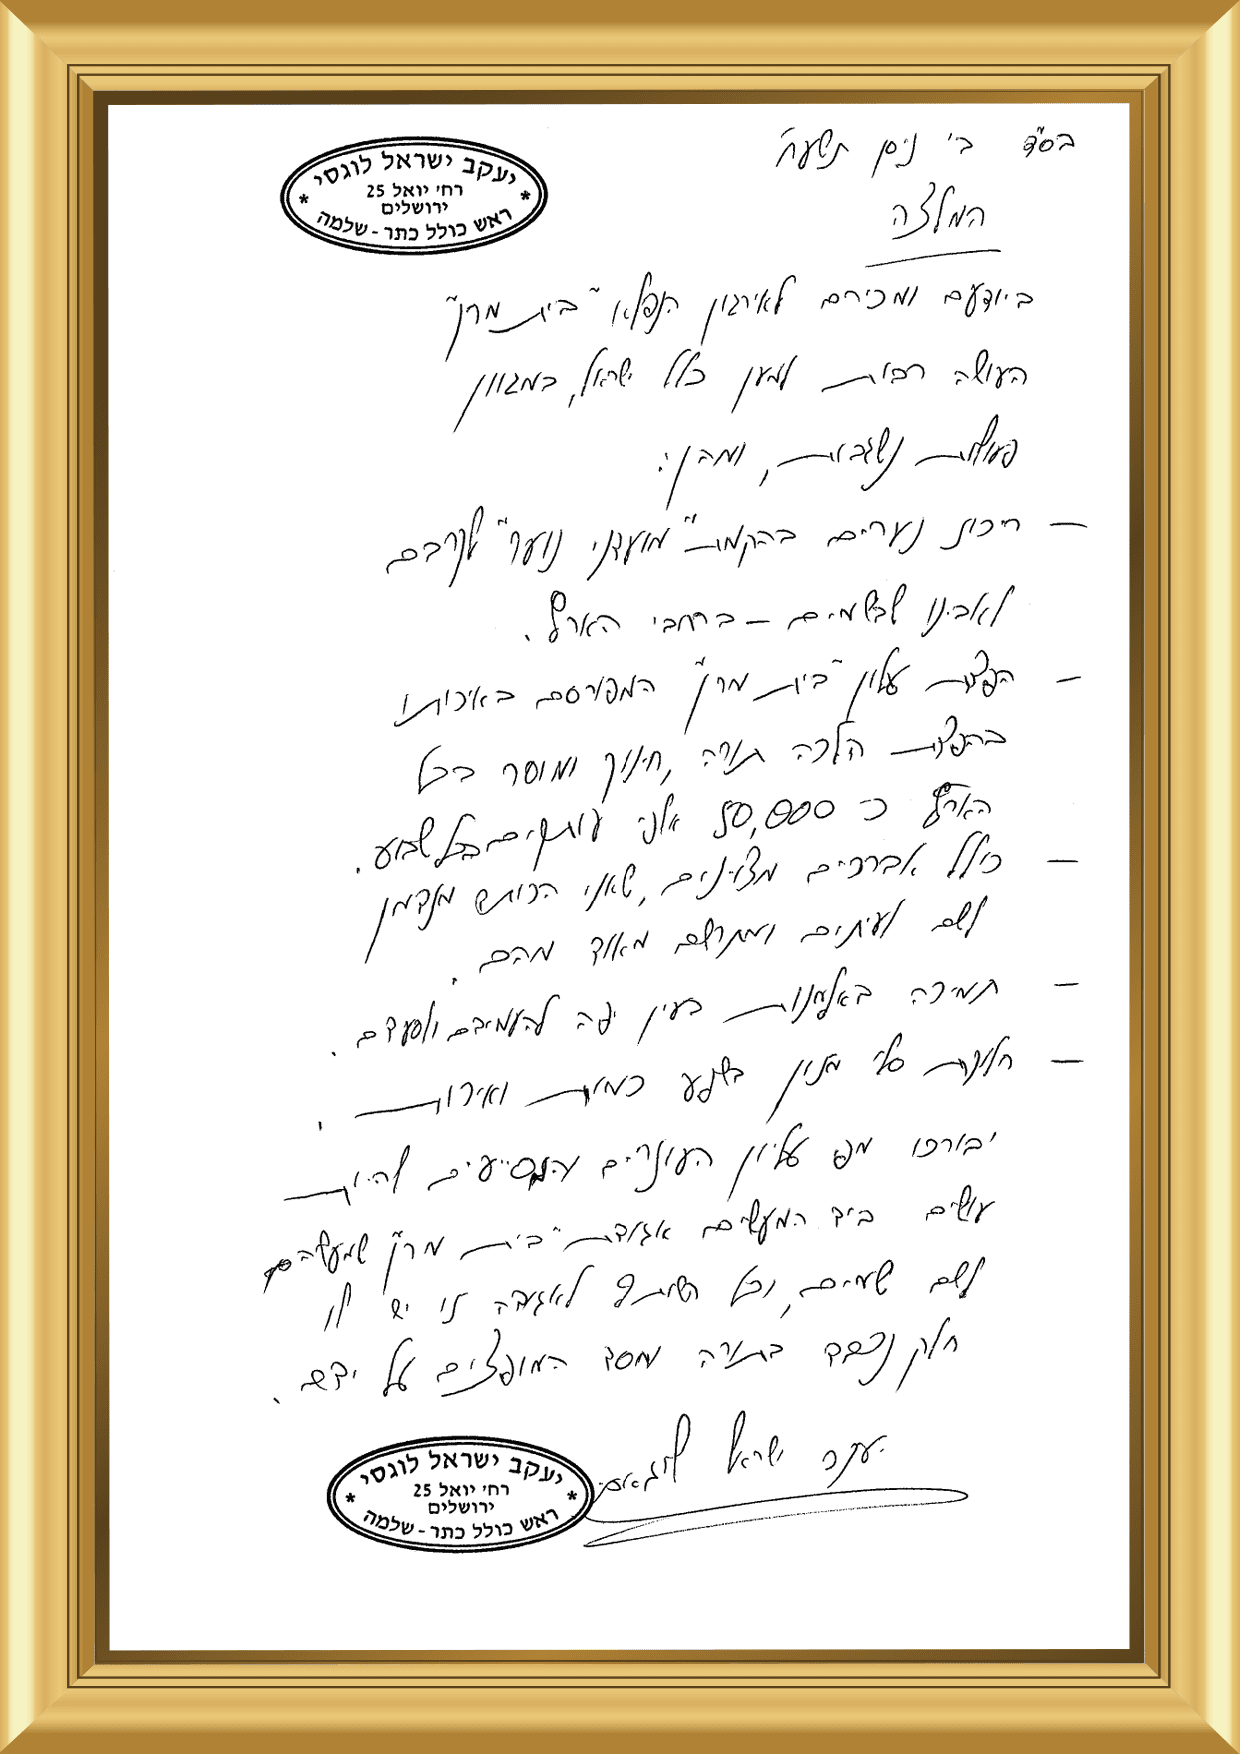 בס"ד ב' ניסן תשע"ח
יעקב ישראל לוגסי
רח' יואל 25
ירושלים
ראש כולל כתר - שלמה
המלצה
ביודעם ומכירם לאירגון הנפלא "בית מרן"
העושה רבות למען כלל ישראל, במגוון
פעולות נשגבות, ומהן:
– ריכוז נערים בהקמת "מועדני נוער" לקרבם
לאבינו שבשמים – ברחבי הארץ.
– הפצת עלון "בית מרן" המפורסם באיכותו
בהפצת הלכה תורה, חינוך ומוסר בכל
הארץ כ 50,000 אלפי עותקים בכל שבוע.
– כולל אברכים מצוינים, שאני הכותב מזדמן
לשם לעיתים ומתרשם מאוד מהם.
– תמיכה באלמנות בעין יפה להעמידם ולסעדם.
– חלוקת סלי מזון בשפע כמות ואיכות.
יבורכו מפי עליון העוזרים והמסייעים להיות
עושים ביד המעשים אגודת "בית מרן" שמעשיהם
לשם שמים, וכל השותף לאגודה זו יש לו
חלק נכבד בתורה וחסד המופצים על ידם.
יעקב ישראל לוגאסי
יעקב ישראל לוגסי
רח' יואל 25
ירושלים
ראש כולל כתר - שלמה